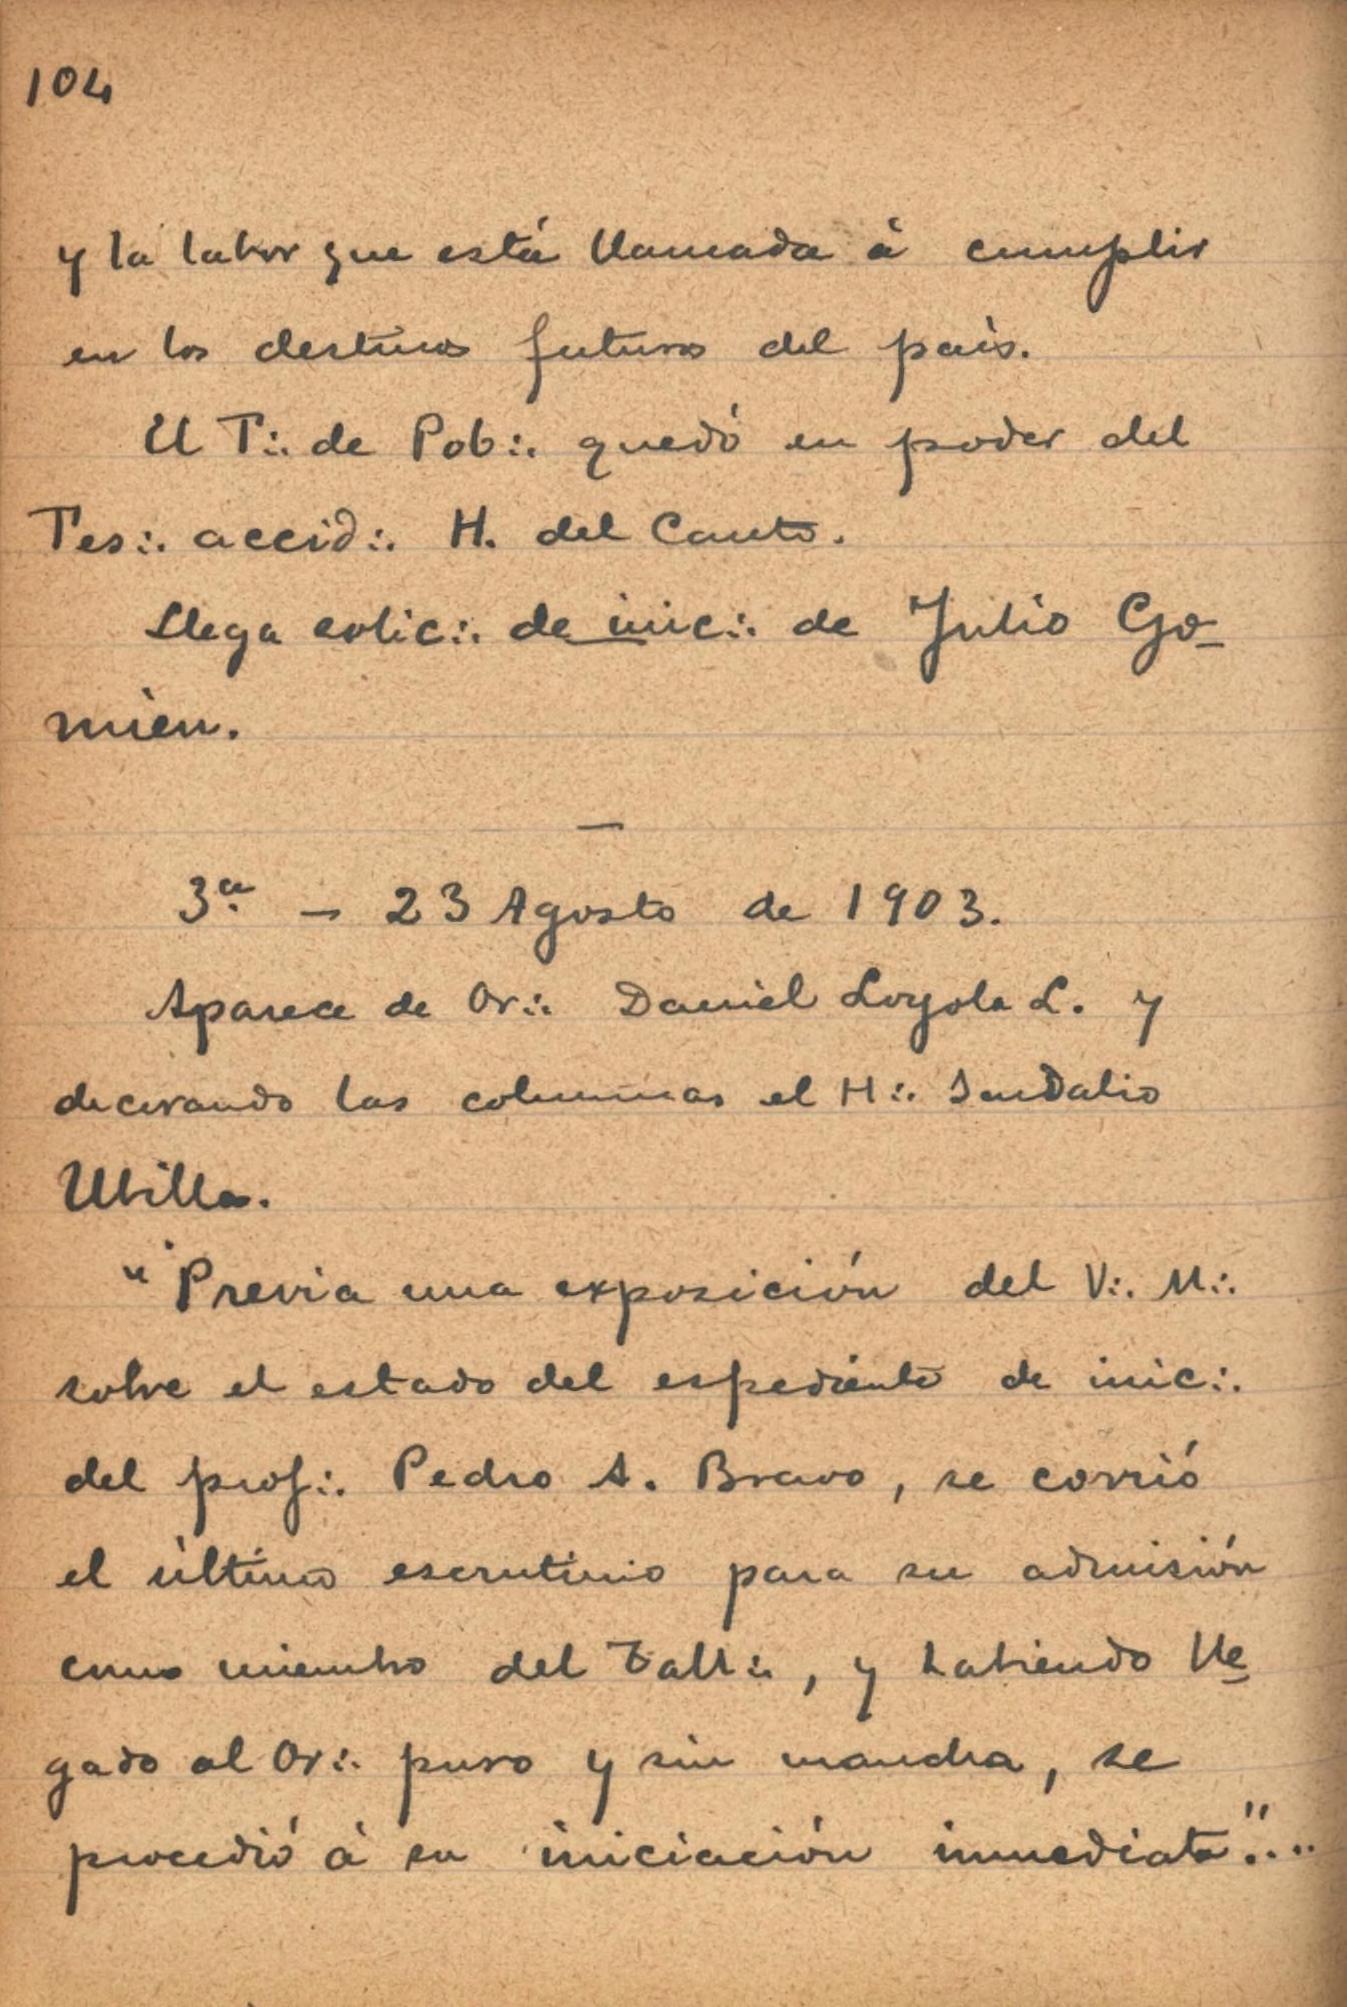 104
y la labor que está llamada á cumplir
en los destinos futuros del país.
El T∴ de Pob∴ quedó en poder del
Tes∴ accid∴ H. del Canto.
Llega solic∴ de inic∴ de Julio Go-
mien.
—
3ª. — 23 Agosto de 1903.
Aparece de Or∴ Daniel Loyola L. y
decorando las columnas el H∴ Sandalio
Ubilla.
"Previa una exposición del V∴ M∴
sobre el estado del espediente de inic∴
del prof∴ Pedro A. Bravo, se corrió
el último escrutinio para su admisión
como miembro del Tall∴, y habiendo lle-
gado al Or∴ puro y sin mancha, se
procedió á su iniciación inmediata"....